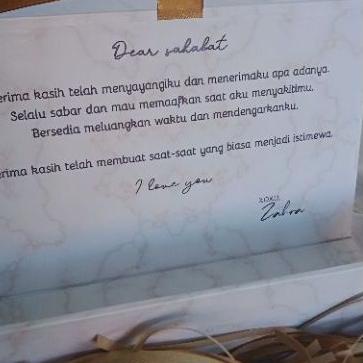 Dear sahabat
erima kasih telah menyayangiku dan menerimaku apa adanya.
Selalu sabar dan mau memaafkan saat aku menyakitimu.
Bersedia meluangkan waktu dan mendengarkanku.
erima kasih telah membuat saat-saat yang biasa menjadi istimewa.
I love you
XOXO,
Zahra